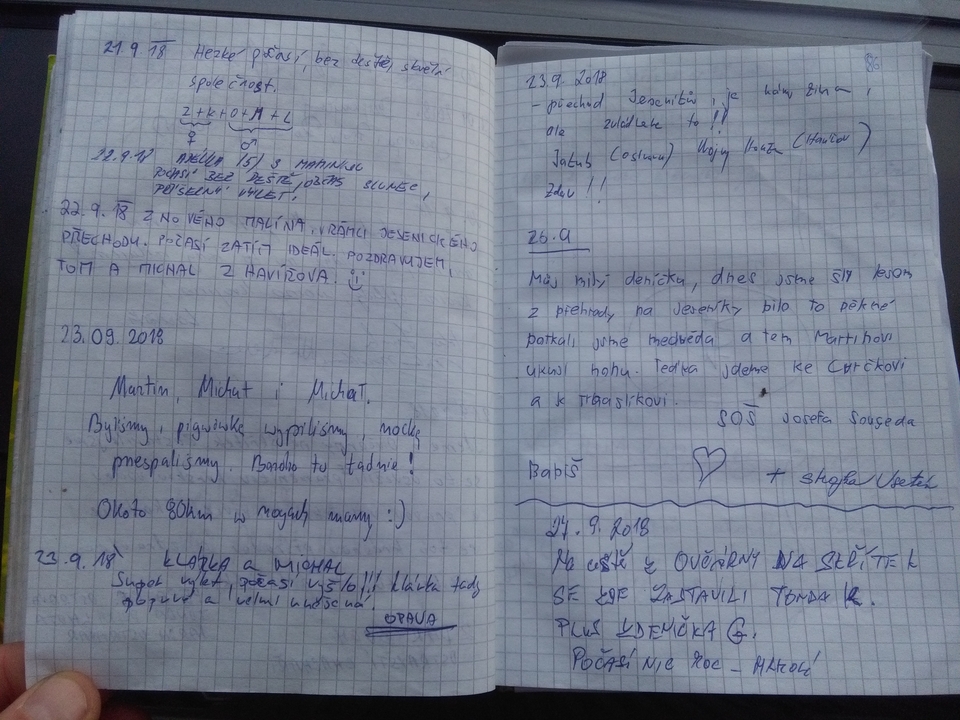 21.9.18 Hezké počasí, bez deště, skvělá
společnost.
Z+K+O+M+L
♀ ♂
22.9.18 (5) S MAMINKOU
POČASÍ BEZ DEŠTĚ, OBČAS SLUNCE,
VÝLET!
22.9.18 Z NOVÉHO MALÍNA. V RÁMCI JESENICKÉHO
PŘECHODU. POČASÍ ZATÍM IDEÁL. POZDRAVUJEM,
TOM A MICHAL Z HAVÍŘOVA.
23.09.2018
Martin, Michał i Michał.
Byliśmy, pigwówkę wypiliśmy, nockę
przespaliśmy. Bardzo tu ładnie!
Około 80km w nogach mamy :)
23.9.18 KLÁRKA a MICHAL
Super výlet, počasí vyšlo!!! Klárka tady
a velmi
OPAVA
86
23.9.2018
- přechod Jeseníků, je kimy,
ale zvládnem to!!
Jakub (Hanušov)
Zdar!!
26.9
Můj milý deníčku, dnes jsme šli lesom
z přehrady na Jeseníky bilo to pěkné
potkali jsme medvěda a ten Martinovi
ukusl nohu. Teďka jdeme ke Cvrčkovi
a k
SOŠ Josefa Souseda
Babiš ♡ + Vsetín
27.9.2018
Na cestě z OVČÁRNY NA SKŘÍTEK
SE ZDE ZASTAVILI TONDA K.
PLUS ZDENIČKA G.
POČASÍ NIC MOC –